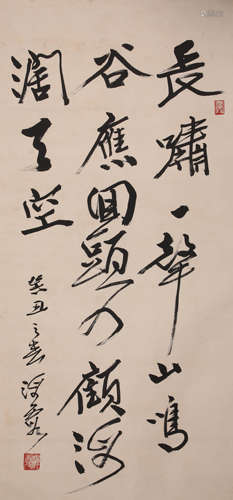 長嘯一聲山鳴
谷應回頭四顧海
濶天空
癸丑之春